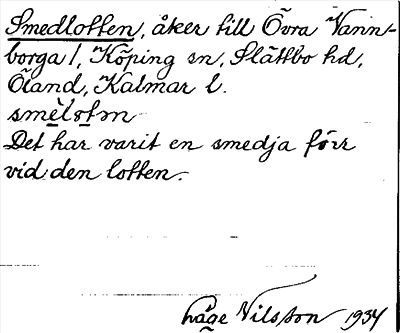 Smedlotten, åker till Övra Vann-
borga 1, Köping sn, Slättbo hd,
Öland, Kalmar l.
smèlotǝn
Det har varit en smedja förr
vid den lotten.
Åge Nilsson 1934